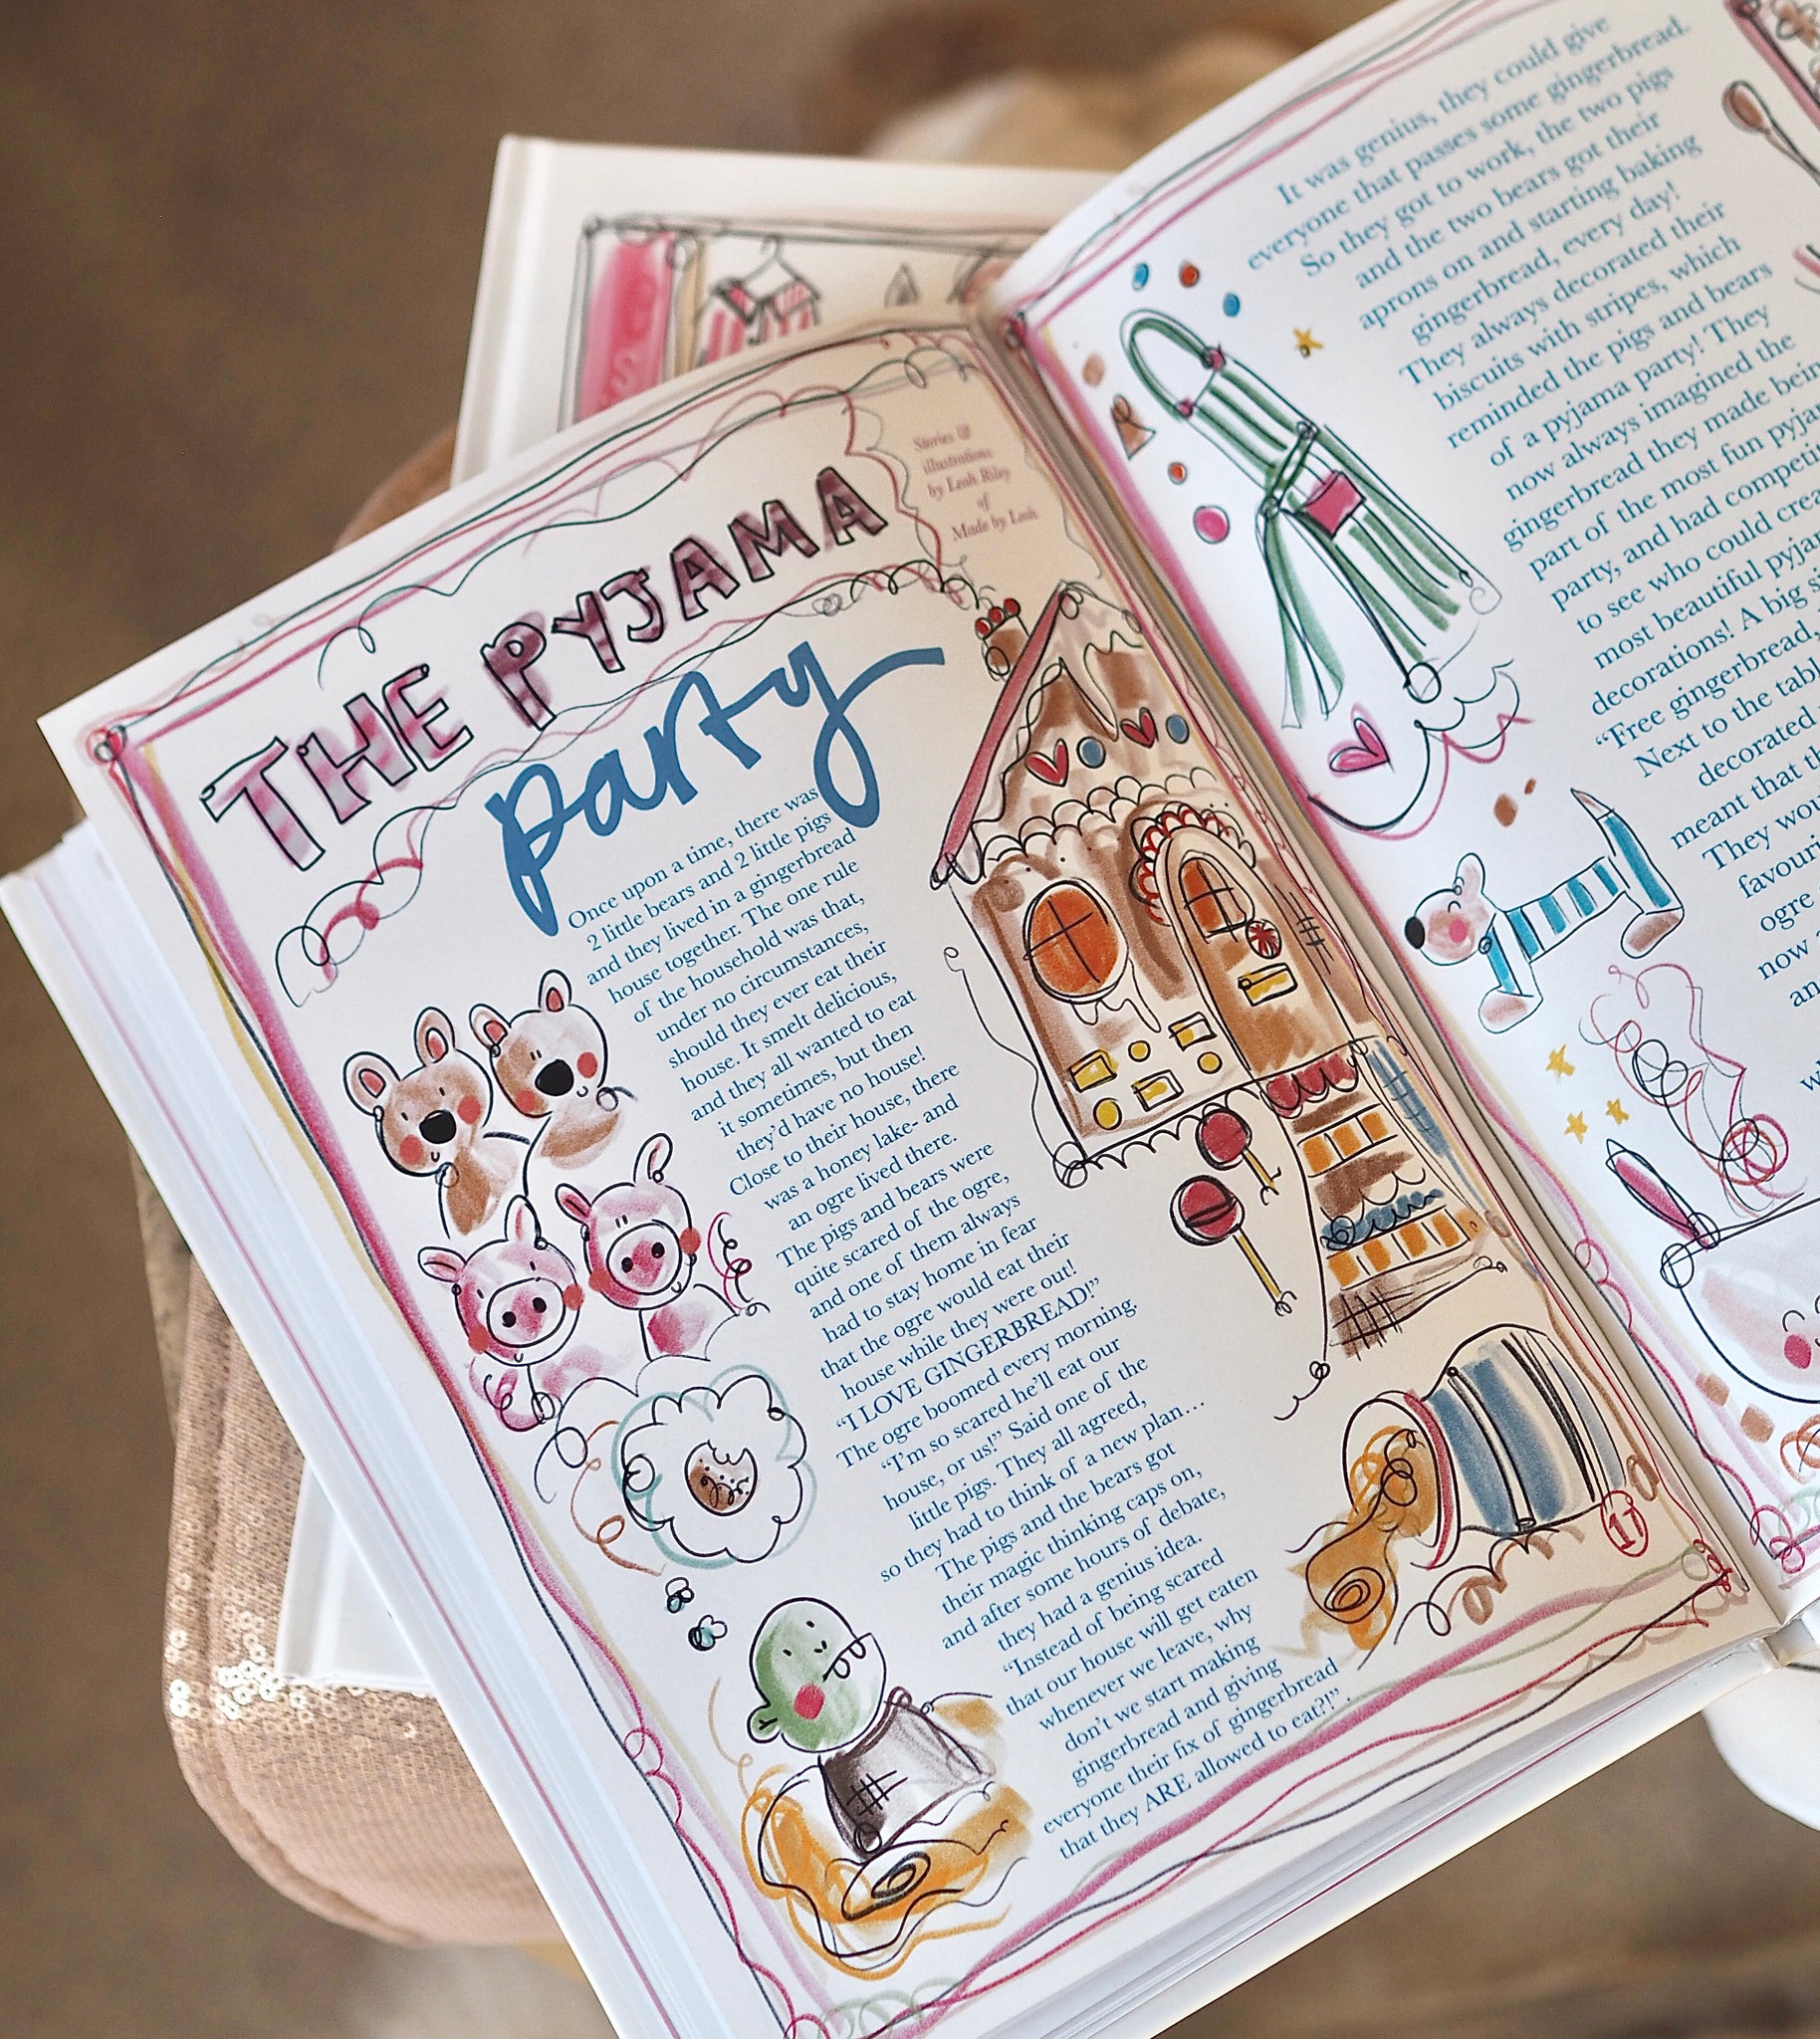 THE PYJAMA
party
Stories &
illustrations
by Leah Riley
of
Made by Leah
Once upon a time, there was
2 little bears and 2 little pigs
and they lived in a gingerbread
house together. The one rule
of the household was that,
under no circumstances,
should they ever eat their
house. It smelt delicious,
and they all wanted to eat
it sometimes, but then
they'd have no house!
Close to their house, there
was a honey lake- and
an ogre lived there.
The pigs and bears were
quite scared of the ogre,
and one of them always
had to stay home in fear
that the ogre would eat their
house while they were out!
"I LOVE GINGERBREAD!"
The ogre boomed every morning.
"I'm so scared he'll eat our
house, or us!" Said one of the
little pigs. They all agreed,
so they had to think of a new plan…
The pigs and the bears got
their magic thinking caps on,
and after some hours of debate,
they had a genius idea.
"Instead of being scared
that our house will get eaten
whenever we leave, why
don't we start making
gingerbread and giving
everyone their fix of gingerbread
that they ARE allowed to eat?!"
17
It was genius, they could give
everyone that passes some gingerbread.
So they got to work, the two pigs
and the two bears got their
aprons on and starting baking
gingerbread, every day!
They always decorated their
biscuits with stripes, which
reminded the pigs and bears
of a pyjama party! They
now always imagined the
gingerbread they made being
part of the most fun
party, and had
to see who could
most beautiful
decorations! A big
"Free gingerbread,
Next to the
decorated
meant that
They
ogre
now